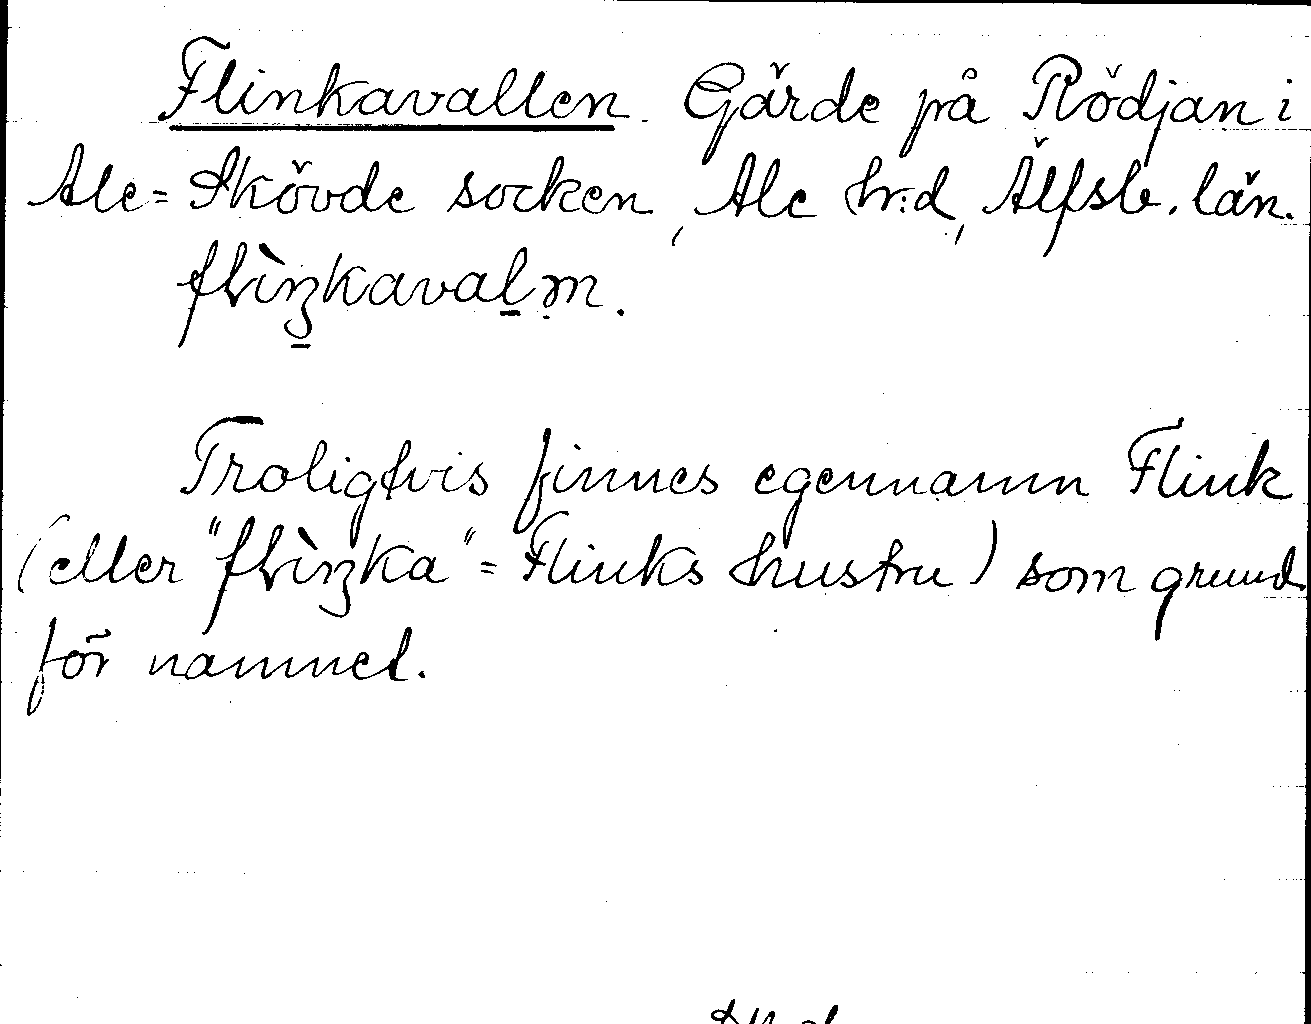 Flinkavallen. Gärde på Rödjan i
Ale=Skövde socken, Ale h:d, Älfsb. län.
flìŋkavaḻm̥.
Troligtvis finnes egennamn Flink
(eller "flìŋka" = Flinks hustru) som grund
för namnet.